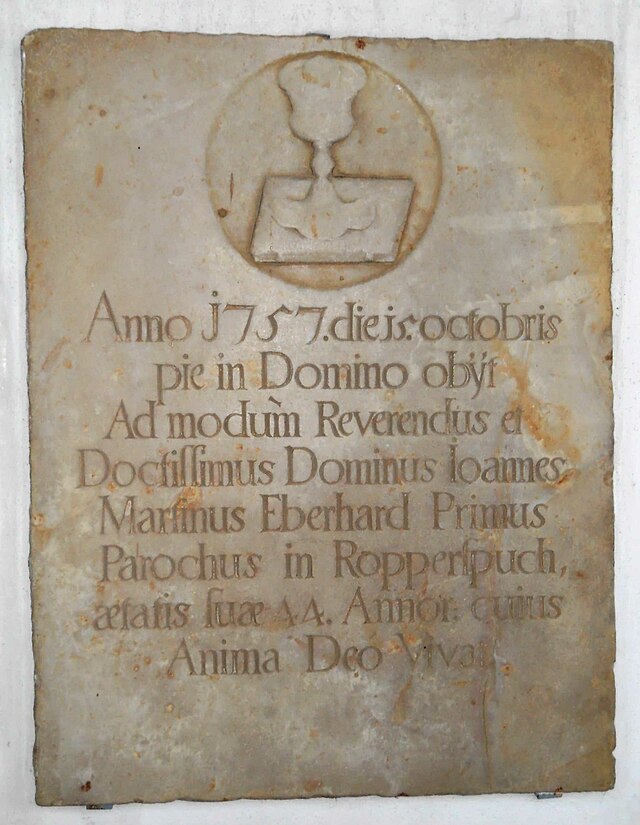 Anno j757. die i5. octobris
pie in Domino obÿt
Ad modum̀ Reverendus et
Doctiſſimus Dominus Ioannes
Martinus Eberhard Primus
Parochus inRopperſpuch,
ætatis ſuæ 44. Annor: cuius
Anima Deo Vivat